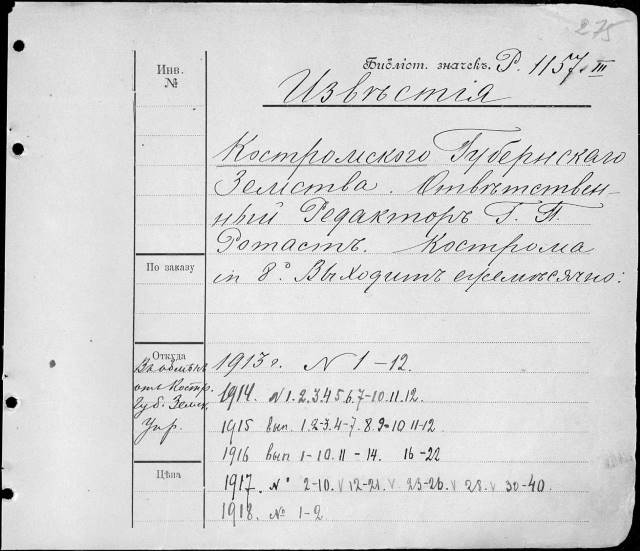 275
Библіот. значекъ. Р. 1157 III
Инв.
№
Извѣстія
Костромского Губернскаго
Земства. Отвѣтствен-
ный Редакторъ Г. П.
Ротастъ. Кострома
in 8.° Выходитъ ежемѣсячно:
По заказу
Откуда
Въ обмѣнъ
отъ Костр.
Губ. Земск.
Упр.
1913 г. N 1-12.
1914. N 1.2.3.4.5.6.7-10.11.12.
1915 вып. 1.2-3.4-7.8.9-10 11-12
1916 вып 1-10.11-14. 16-22
Цѣна
1917. №° 2-10. V 12-21. V 23-26. V 28. V 30-40.
1918. № 1-2